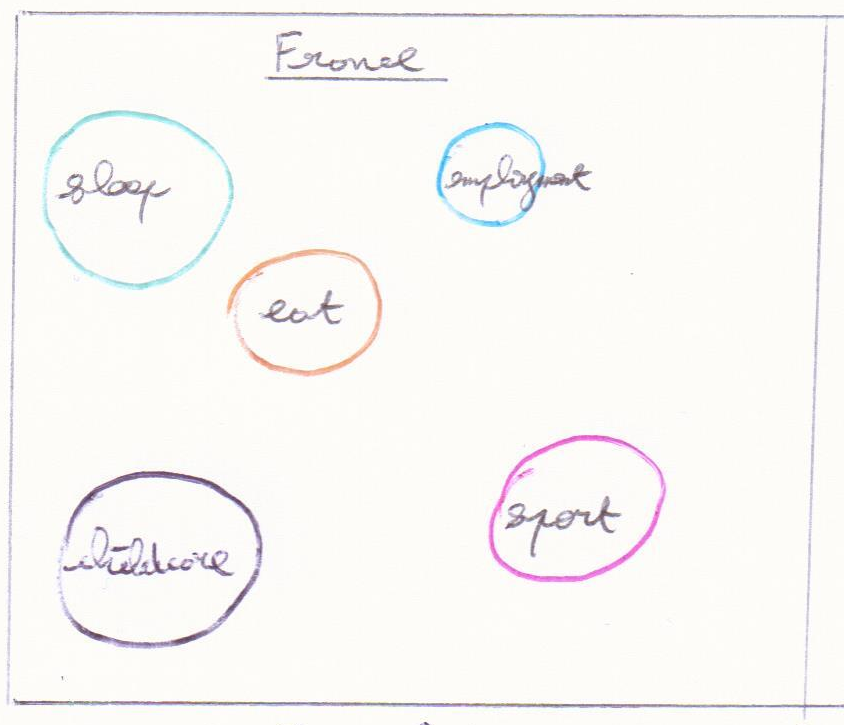 France
sleep
employment
eat
childcare
sport